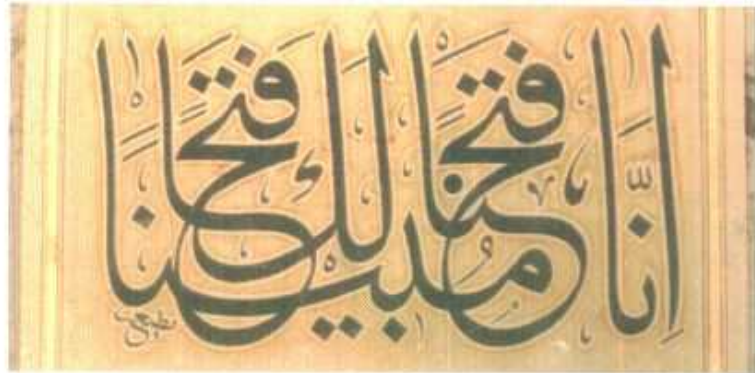 إنا فتحنا لك فتحا مبينا
نظيف